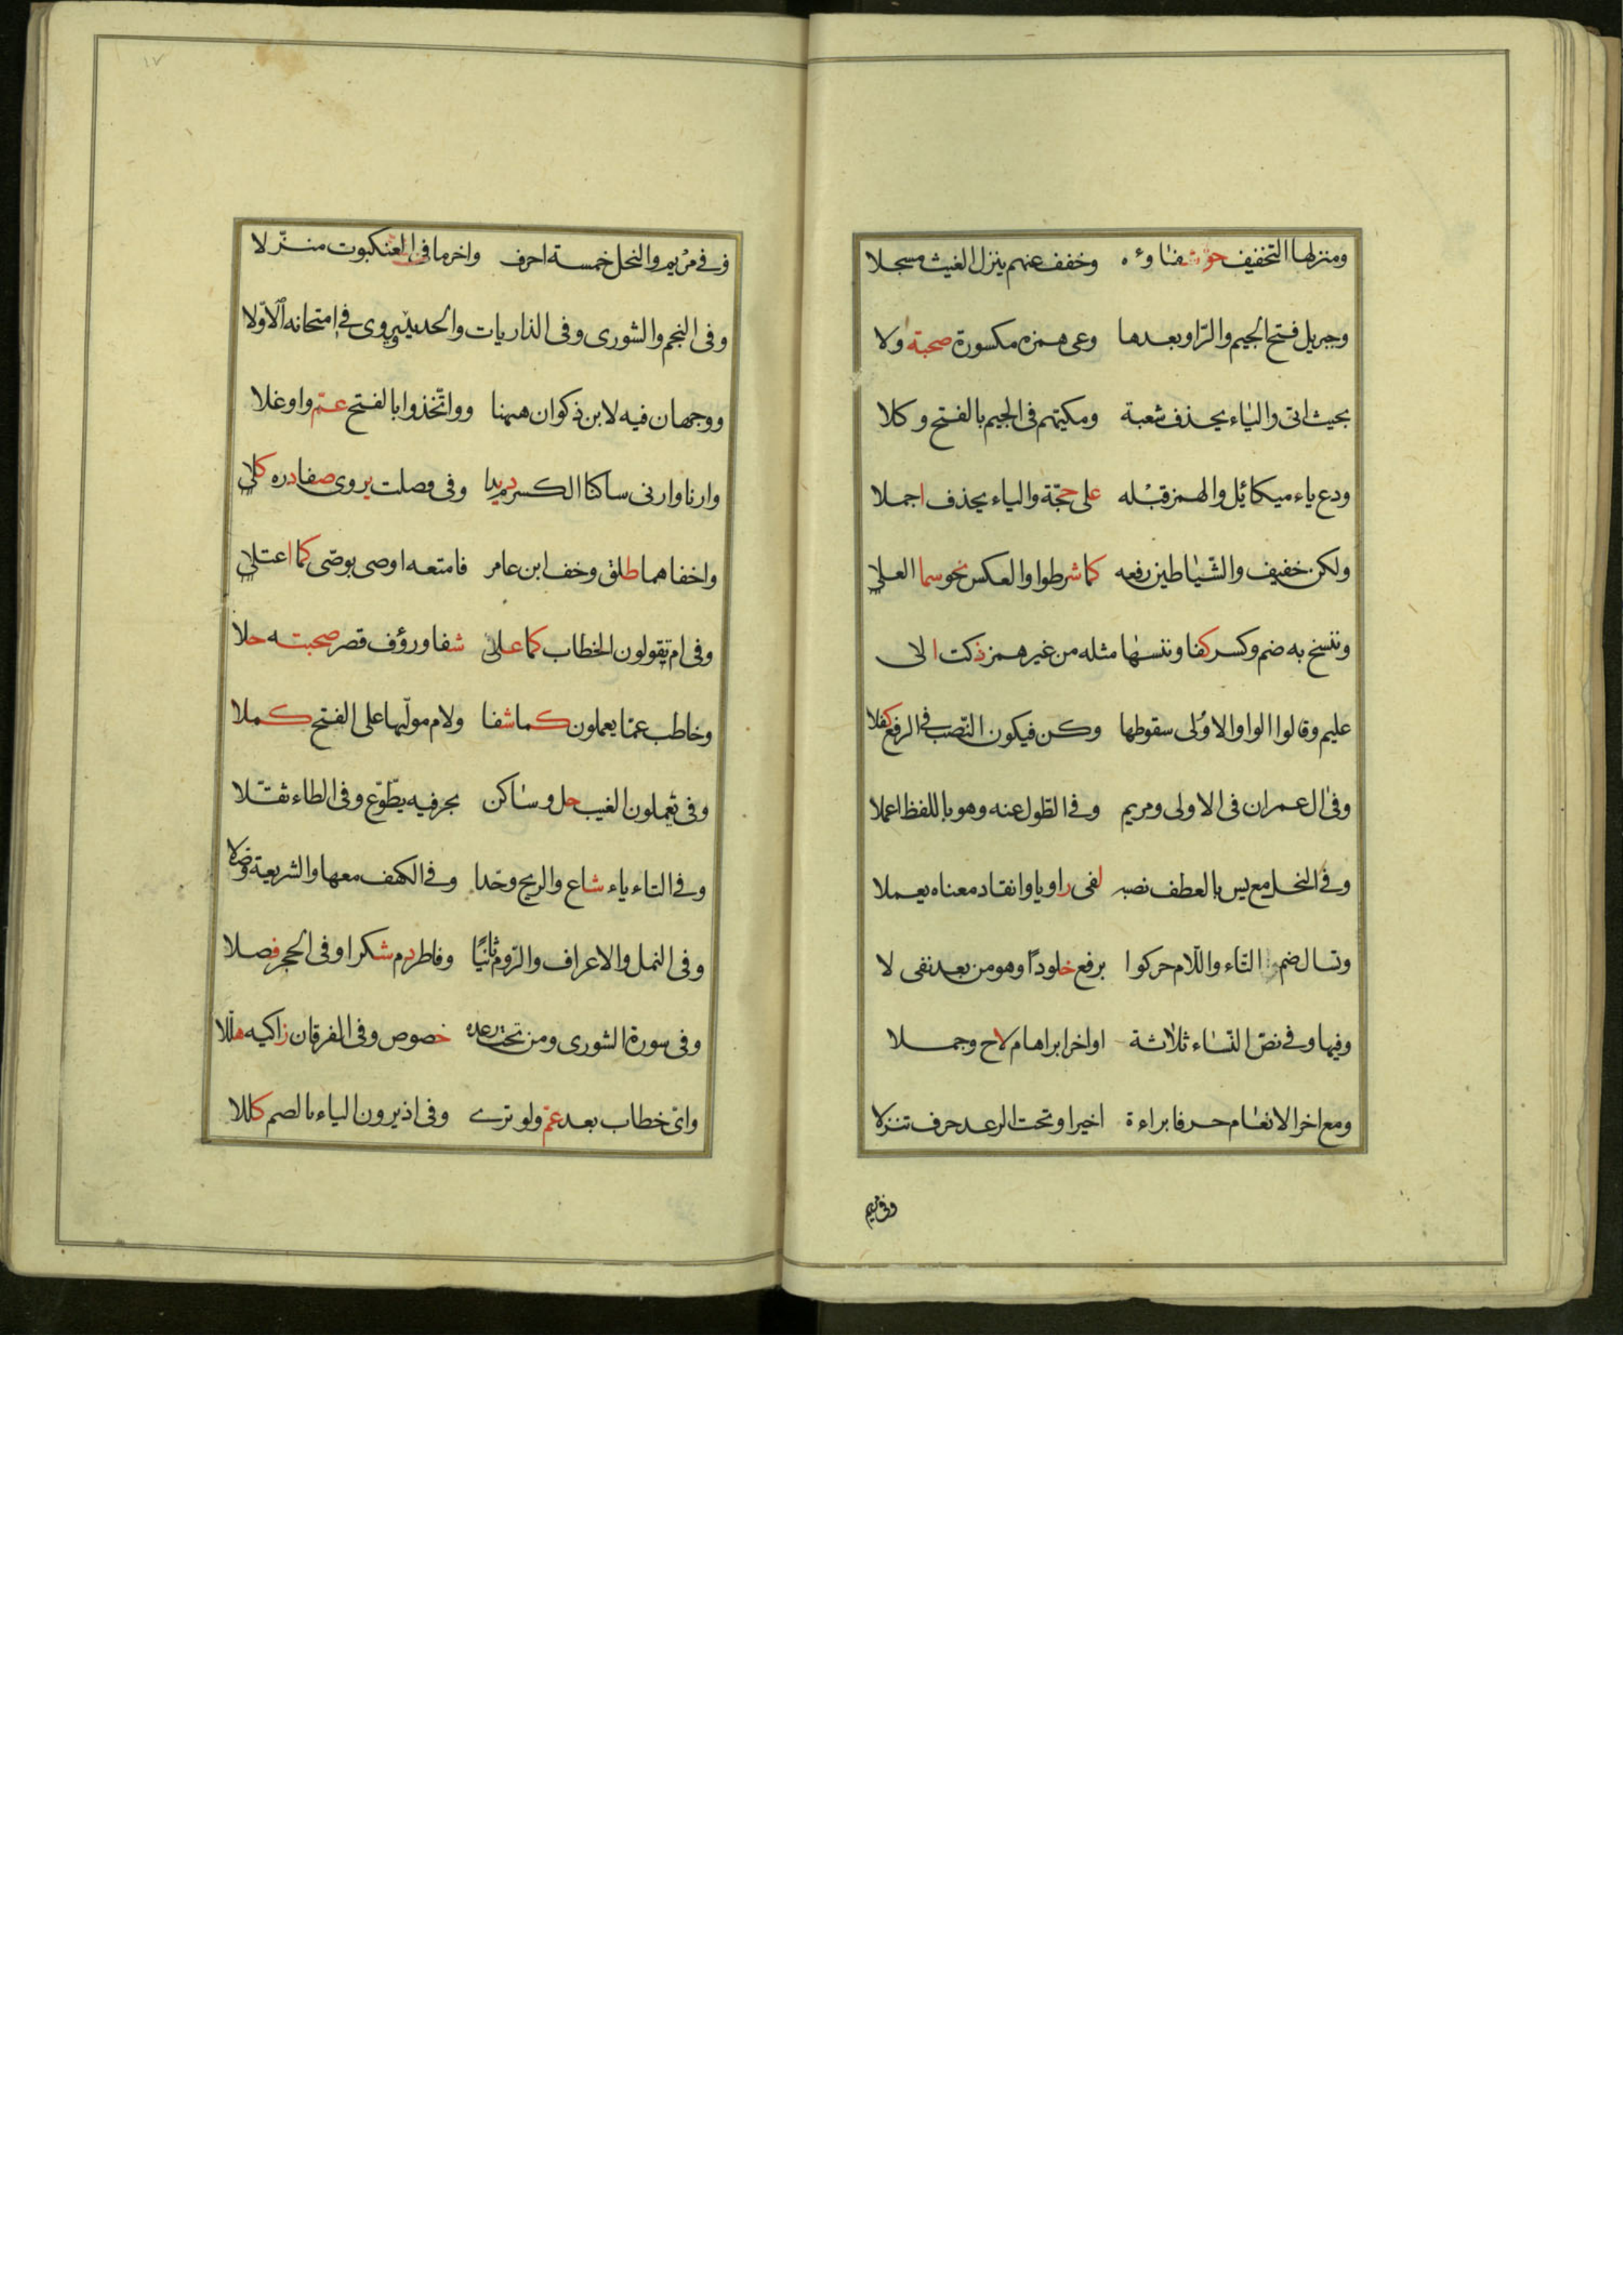 ومنزلها التخفيف حق شفاؤه وخفف عنهم ينزل الغيث مسجلا
وجبريل فتح الجيم والرا وبعدها وعى همزه مكسورة صحبة ولا
بحيث اتى والياء يحذف شعبة ومكيهم فى الجيم بالفتح وكلا
ودع ياء ميكائيل والهمز قبله على حجة والياء يحذف اجملا
ولكن خفيف والشياطين رفعه كما شرطوا والعكس نحو سما العلى
وننسخ به ضم وكسر كفا وننسها مثله من غير همز ذكت الى
عليم وقالوا الواو الاولى سقوطها وكن فيكون النصب فى الرفع كفلا
وفى ال عمران فى الاولى ومريم وفى الطول عنه وهو باللفظ اعملا
وفى النحل مع يس بالعطف نصبه كفى راويا وانقاد معناه يعملا
وتسال ضموا التاء واللام حركوا برفع خلودًا وهو من بعد نفى لا
وفيها وفى نص النساء ثلاثة اواخر ابراهام لاح وجملا
ومع اخر الانعام حرفا براءة اخيرا وتحت الرعد حرف تنزلا
وفى مريم
١٧
وفى مريم والنحل خمسة احرف واخر ما فى العنكبوت منزلا
وفى النجم والشورى وفى الذاريات والحديد ويروى فى امتحانه الاولا
ووجهان فيه لابن ذكوان ههنا وواتخذوا بالفتح عم واوغلا
وارنا وارنى ساكنا الكسر دم يدا وفى فصلت يروى صفا دره كلى
واخفاهما طلق وخف ابن عامر فامتعه اوصى بوصى كما اعتلى
وفى ام تقولون الخطاب كما على شفا ورؤف قصر صحبته حلا
وخاطب عما يعملون كما شفا ولام موليها على الفتح كملا
وفى تعملون الغيب حل وساكن بحرفيه يطوع وفى الطاء ثقلا
وفى التاء ياء شاع والريح وحدا وفى الكهف معها والشريعة وصلا
وفى النمل والاعراف والروم ثانيًا وفاطر دم شكرا وفى الحجر فصلا
وفى سورة الشورى ومن تحت رعده خصوص وفى الفرقان زاكيه هللا
واى خطاب بعد عم ولو ترى وفى اذ يرون الياء بالضم كللا